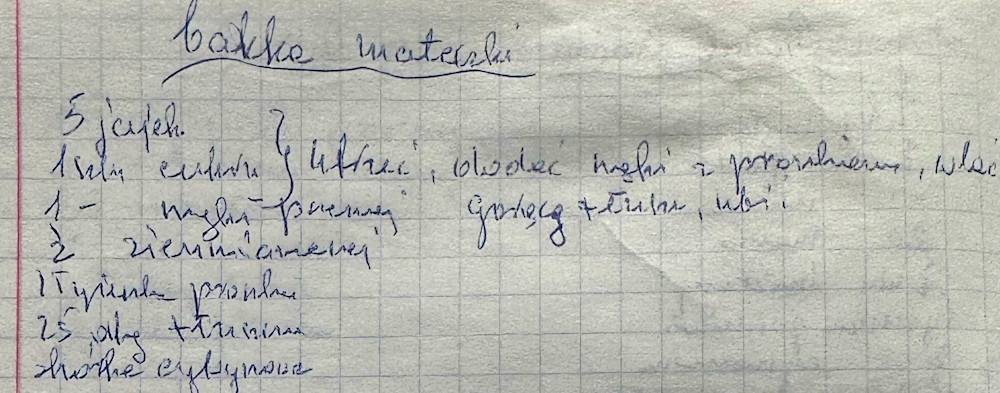 babka materski
5 jajek
1 szkl cukru } utrzeć, dodać mąki z proszkiem, wlać
1 - mąki pszennej gorący tłuszcz, ubić
2 ziemniaczanej
1 łyżeczka proszku
25 dkg tłuszczu
skórka cytrynowa